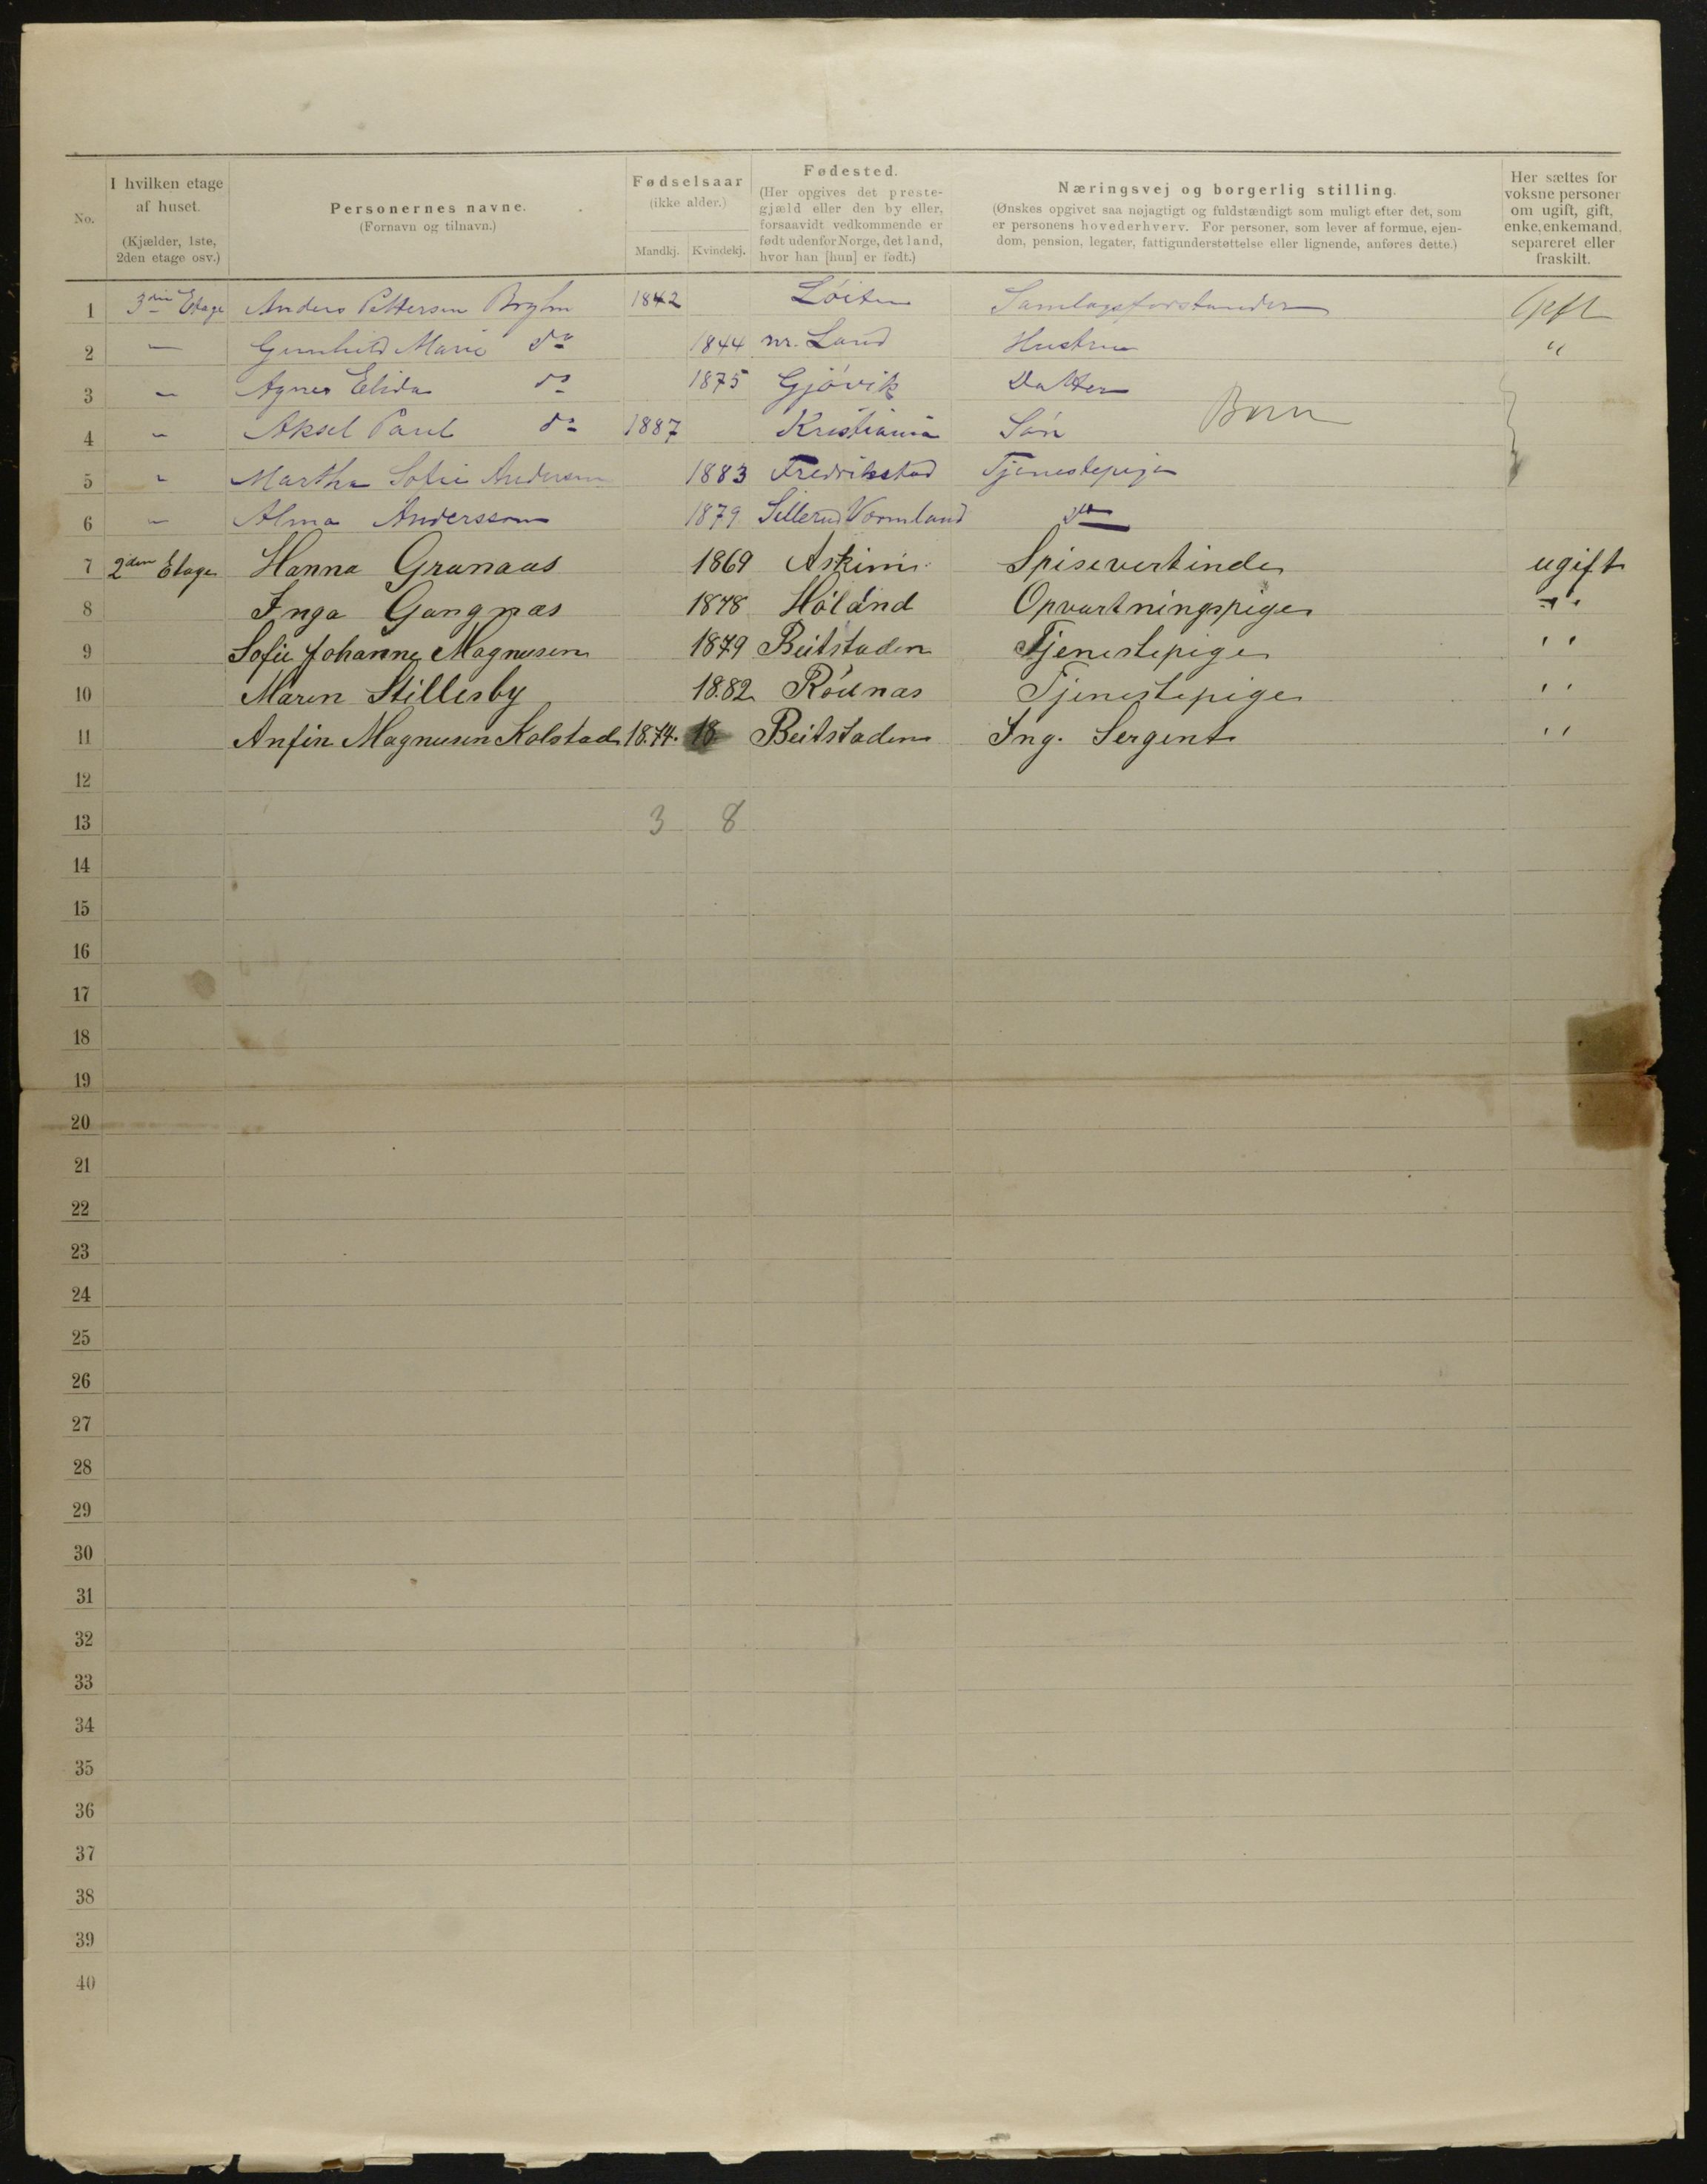 No.
I hvilken etage af huset. (Kjælder, 1ste, 2den etage osv.)
Personernes navne. (Fornavn og tilnavn.)
Fødselsaar (ikke alder.)
Mandkj. Kvindekj.
Fødested. (Her opgives det prestegjæld eller den by eller, forsaavidt vedkommende er født udenfor Norge, det land, hvor han [hun] er født.)
Næringsvej og borgerlig stilling. (Ønskes opgivet saa nøjagtigt og fuldstændigt som muligt efter det, som er personens hovederhverv. For personer, som lever af formue, ejendom, pension, legater, fattigunderstøttelse eller lignende, anføres dette.)
Her sættes for voksne personer om ugift, gift, enke, enkemand, separeret eller fraskilt.
1 3die Etage Anders Pettersen 1842 Löiten Samlagsforstander Gift
2 – Gunhild Marie do 1844 nr. Land Hustru "
3 – Agnes Elida do 1875 Gjövik Datter
4 – Aksel Paul do 1887 Kristiania Sön Börn
5 – Martha Sofie Andersen 1883 Fredrikstad Tjenestepige
6 – Alma Andersson 1879 Sillerud Värmland do
7 2den Etage Hanna Granaas 1869 Askim Spisevertinde ugift
8 Inga Gangnæs 1878 Höland Opvartningspige "
9 Sofie Johanne Magnusen 1879 Beitstaden Tjenestepige "
10 Maren Stillesby 1882 Rödnæs Tjenestepige "
11 Anfin Magnusen Kolstad 18.74. 18 Beitstaden Ing. Sergent "
12
13 3 8
14
15
16
17
18
19
20
21
22
23
24
25
26
27
28
29
30
31
32
33
34
35
36
37
38
39
40